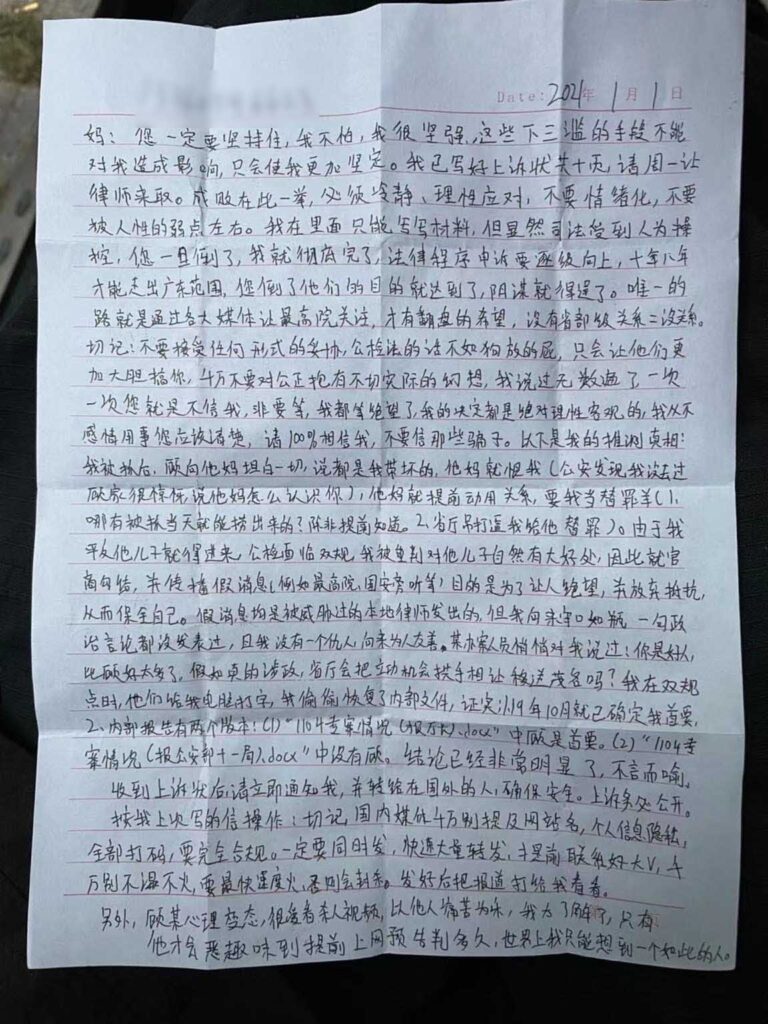 Date: 2021年 1月 1日
妈：您一定要坚持住，我不怕，我很坚强，这些下三滥的手段不能
对我造成影响，只会使我更加坚定。我已写好上诉状共十页，请周一让
律师来取。成败在此一举，必须冷静、理性应对，不要情绪化，不要
被人性的弱点左右。我在里面只能写写材料，但显然司法受到人为操
控，您一旦倒了，我就彻底完了，法律程序申诉要逐级向上，十年八年
才能走出广东范围，您倒了他们的目的就达到了，阴谋就得逞了。唯一的
路就是通过各大媒体让最高院关注，才有翻盘的希望，没有省部级关系=没关系。
切记：不要接受任何形式的妥协，公检法的话不如狗放的屁，只会让他们更
加大胆搞你，千万不要对公正抱有不切实际的幻想，我说过无数遍了一次
一次您就是不信我，非要等，我都等绝望了，我的决定都是绝对理性客观的，我从不
感情用事您应该清楚，请100%相信我，不要信那些骗子。以下是我的推测真相：
我被抓后，顾向他妈坦白一切，说都是我带坏的，他妈就恨我（公安发现我没去过
顾家很惊讶，说他妈怎么认识你），他妈就提前动用关系，要我当替罪羊（1.
哪有被抓当天就能捞出来的？除非提前知道。2.省厅吊打逼我给他替罪）。由于我
平反他儿子就得进来，公检面临双规，我被重判对他儿子自然有大好处，因此就官
商勾结，并传播假消息（例如最高院、国安旁听等）目的是为了让人绝望，并放弃抵抗，
从而保全自己。假消息均是被威胁过的本地律师发出的，但我向来守口如瓶，一句政
治言论都没发表过，且我没有一个仇人，向来为人友善。某办案人员悄悄对我说过：你是好人，
比顾好太多了，假如真的涉政，省厅会把立功机会拱手相让移送茂名吗？我在双规
点时，他们给我电脑打字，我偷偷恢复了内部文件，证实：1.19年10月就已确定我首要，
2.内部报告有两个版本：(1)“1104专案情况（报厅长）.docx”中顾是首要。(2)“1104专
案情况（报公安部十一局）.docx”中没有顾。结论已经非常明显了，不言而喻。
收到上诉状后，请立即通知我，并转给在国外的人，确保安全。上诉务必公开。
按我上次写的信操作：切记，国内媒体千万别提及网站名，个人信息隐私
全部打码，要完全合规。一定要同时发，快速大量转发，提前联系好大V，千
万别不温不火，要最快速度火，否则会封杀。发好后把报道打给我看看。
另外，顾某心理变态，很爱看杀人视频，以他人痛苦为乐，我太了解了，只有
他才会恶趣味到提前上网预告判多久，世界上我只能想到一个如此的人。